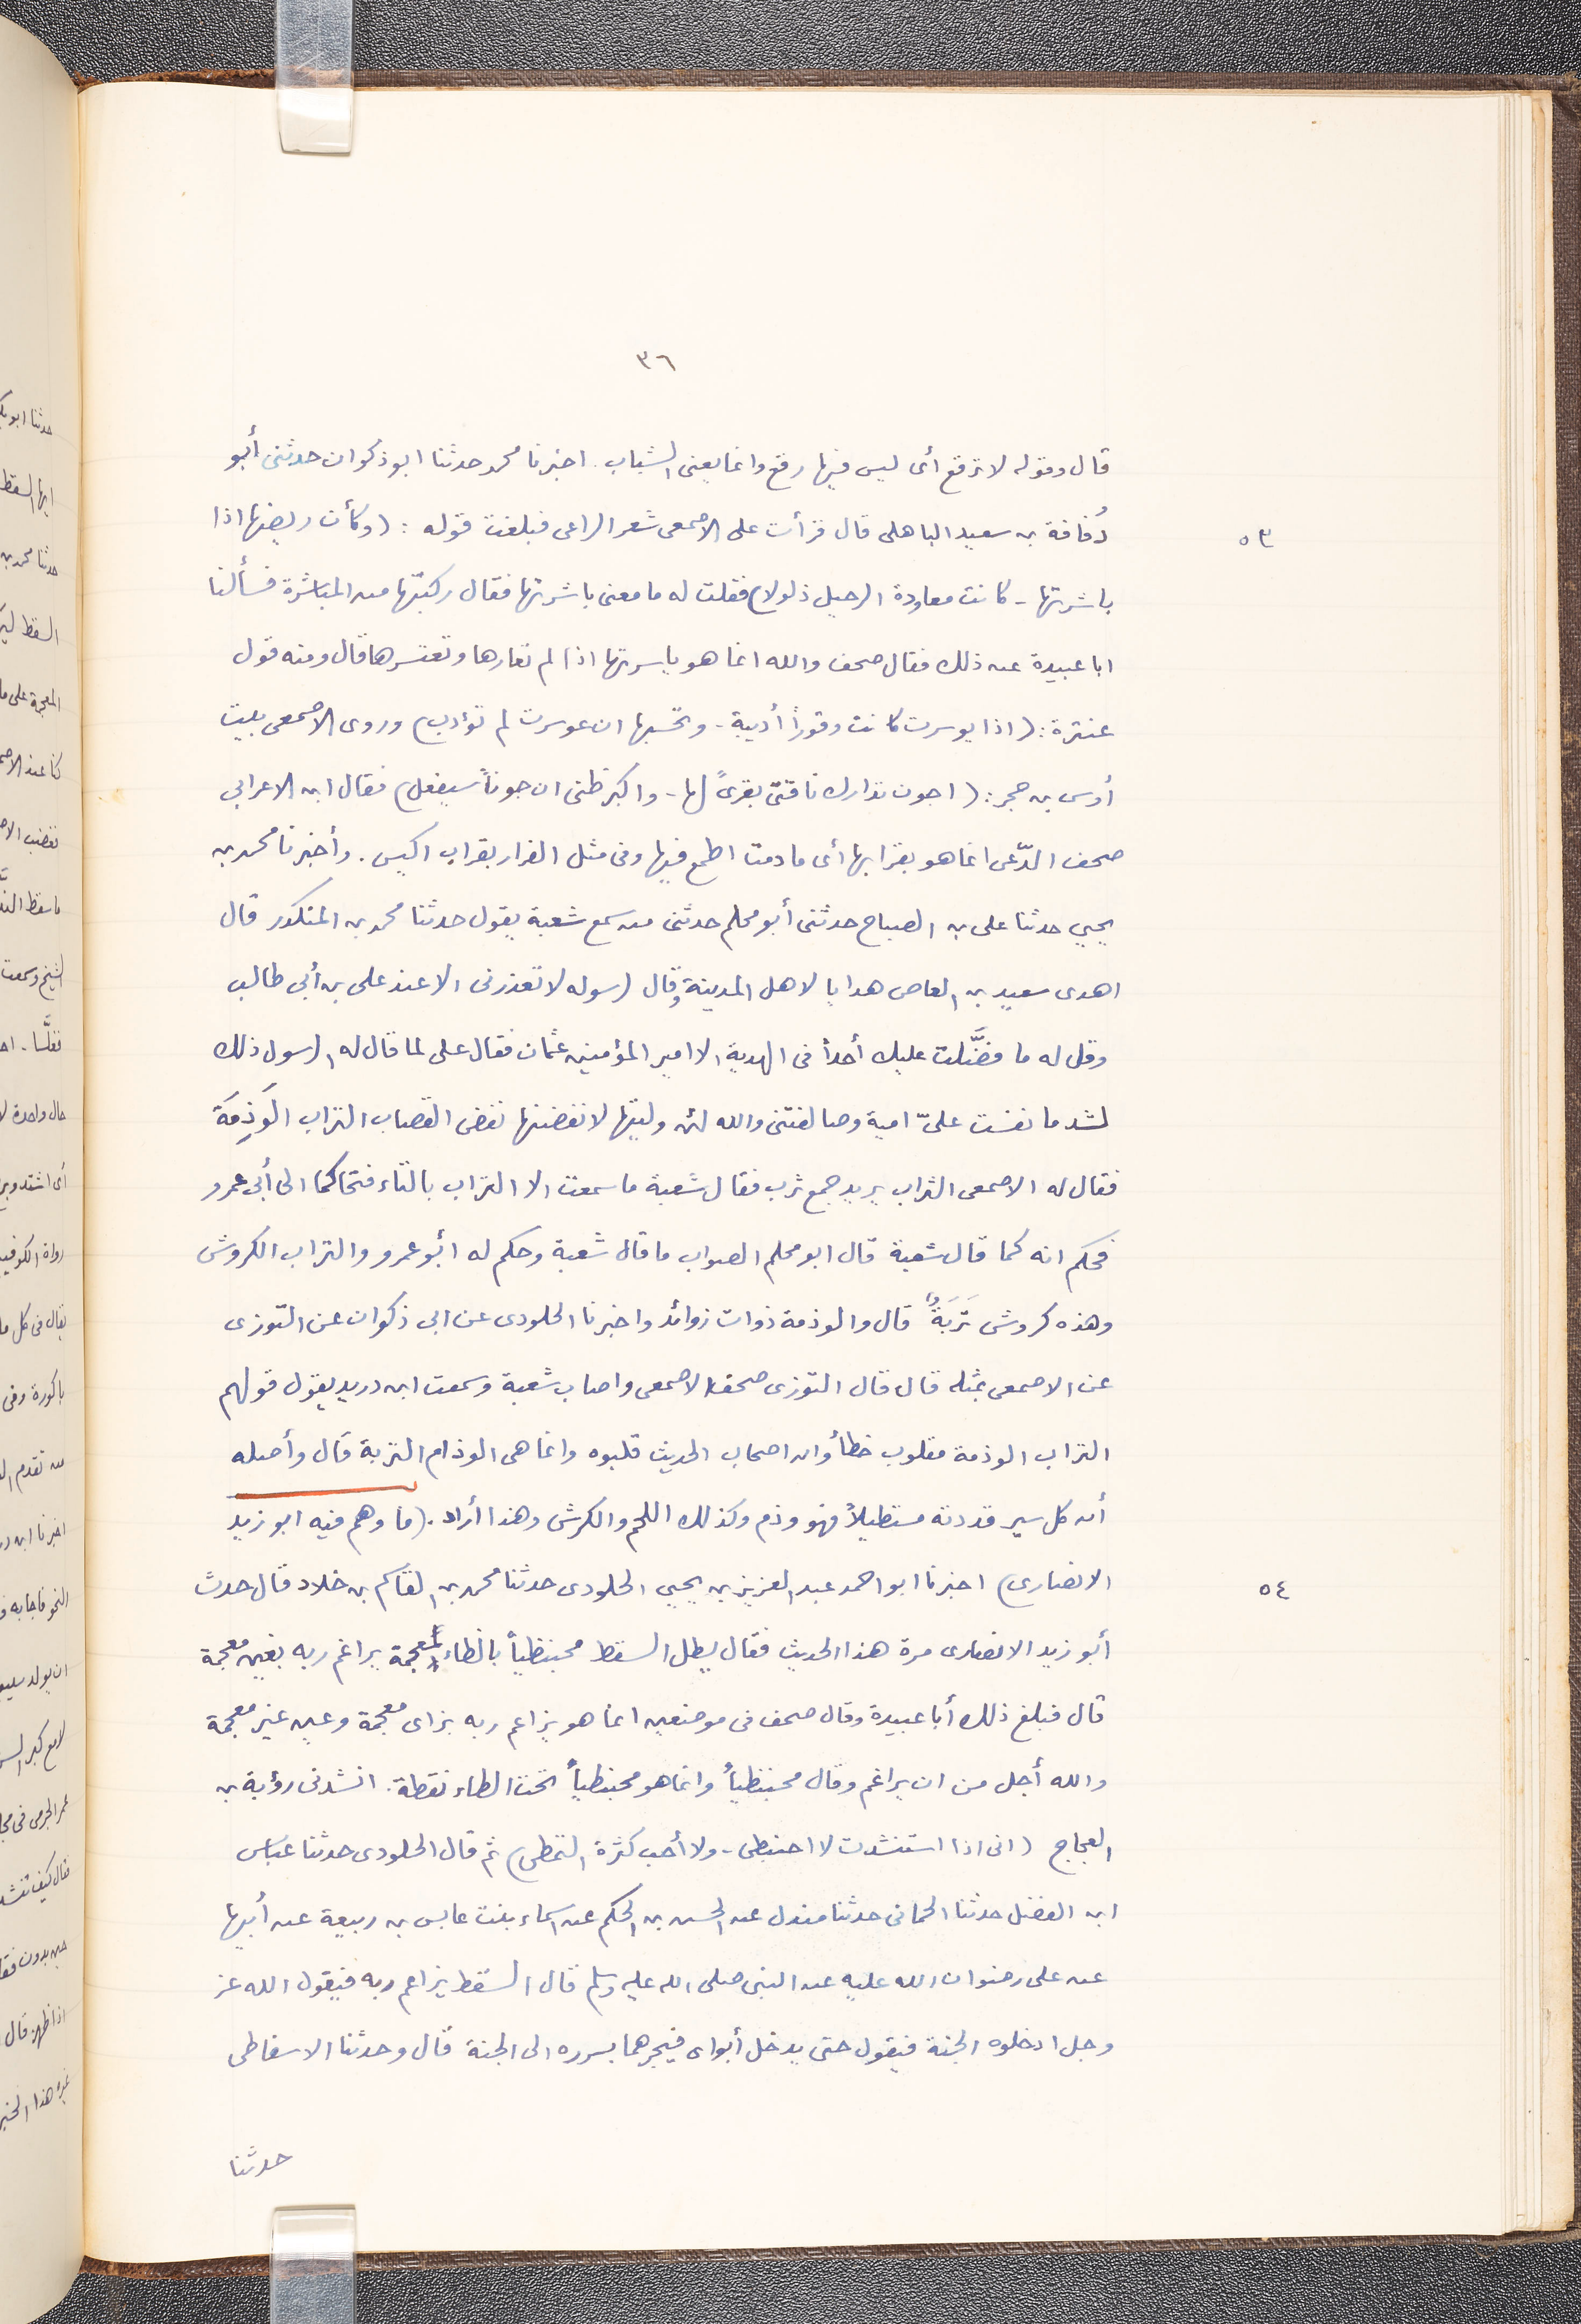 ٣٦
قال وقوله لا ترقع أى ليس فيها رقع وانما يعنى الشباب . اخبرنا محمد حدثنا ابو ذكوان حدثنى أبو
٥٣
دُفافة بن سعيد الباهلى قال قرأت على الاصمعى شعر الراعى فبلغت قوله : (وكأن ريضها اذا
باشرتها - كانت معاودة الرحيل ذلولا) فقلت له ما معنى باشرتها فقال ركبتها من المباشرة فسألنا
ابا عبيدة عن ذلك فقال صحف والله انما هو ياسرتها اذا لم تعارها وتعتسرها قال ومنه قول
عنترة : (اذا يوسرت كانت وقوراً أديبة - وتحسبها ان عوسرت لم تؤدب) وروى الاصمعى بيت
أوس بن حجر : (اجون تدارك ناقتى بقرىً لها - واكبر ظنى ان جوناً سيفعل) فقال ابن الاعرابى
صحف الدّعى انما هو بقرابها أى ما دمت اطمع فيها وفى مثل الفرار بقراب اكيس . وأخبرنا محمد بن
يحيى حدثنا على بن الصباح حدثنى أبو محلم حدثنى من سمع شعبة يقول حدثنا محمد بن المنكدر قال
اهدى سعيد بن العاص هدايا لاهل المدينة وقال لرسوله لا تعذرنى الا عند على بن أبى طالب
وقل له ما فضَّلت عليك أحداً فى الهدية الا امير المؤمنين عثمان فقال على لما قال له الرسول ذلك
لشد ما نفست علىّ امية وصالفتنى والله لئن وليتها لانفضنها نفض القصاب التراب الوَذِمَة
فقال له الاصمعى الثراب يريد جمع ثرب فقال شعبة ما سمعت الا التراب بالتاء فتحاكما الى أبى عمرو
فحكم انه كما قال شعبة قال ابو محلم الصواب ما قال شعبة وحكم له أبو عمرو والتراب الكروش
وهذه كروش تَرَبَةٌ قال والوذمة ذوات زوائد واخبرنا الجلودى عن ابى ذكوان عن التّوزى
عن الاصمعى بمثله قال قال التوزى صحف الاصمعى واصاب شعبة وسمعت ابن دريد يقول قولهم
التراب الوذمة مقلوب خطأ وان اصحاب الحديث قلبوه وانما هى الوذام التربة قال وأصله
أن كل سير قددته مستطيلاً فهو وذم وكذلك اللحم والكرش وهذا أراد . (ما وهم فيه ابو زيد
٥٤
الانصارى) اخبرنا ابو احمد عبد العزيز بن يحيى الجلودى حدثنا محمد بن القاسم بن خلاد قال حدث
أبو زيد الانصارى مرة هذا الحديث فقال يظل السقط محبنظياً بالظاء المعجمة يراغم ربه بغين معجمة
قال فبلغ ذلك أبا عبيدة وقال صحف فى موضعين انما هو يزاعم ربه بزاى معجمة وعين غير معجمة
والله أجل من ان يراغم وقال محبنظياً وانما هو محبنطياً تحت الطاء نقطة . انشدنى رؤبة بن
العجاج (انى اذا استنشدت لا احبنطى - ولا أحب كثرة التمطى) ثم قال الجلودى حدثنا عباس
ابن الفضل حدثنا الحمانى حدثنا مندل عن الحسن بن الحكم عن اسماء بنت عابس بن ربيعة عن أبيها
عن على رضوان الله عليه عن النبى صلى الله عليه وسلم قال السَّقط يزاعم ربه فيقول الله عز
وجل ادخلوه الجنة فيقول حتى يدخل أبواى فيجرهما بسرره الى الجنة قال وحدثنا الاسفاطى
حدثنا